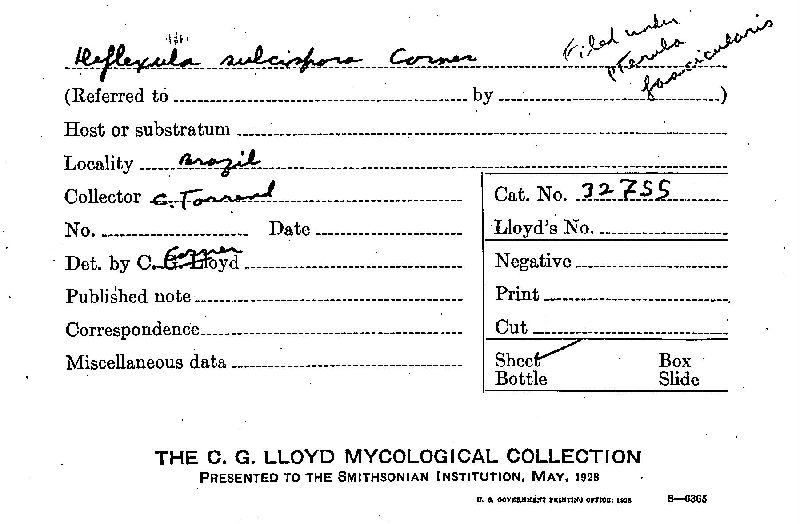 Deflexula sulcispora Corner
Filed under
Pterula
fascicularis
(Referred to by )
Host or substratum
Locality Brazil
Collector C. Torrend
Cat. No. 32755
No. Date
Lloyd's No.
Det. by C. G. Lloyd Corner
Negative
Published note
Print
Correspondence
Cut
Miscellaneous data
Sheet Box
Bottle Slide
THE C. G. LLOYD MYCOLOGICAL COLLECTION
PRESENTED TO THE SMITHSONIAN INSTITUTION, MAY, 1928
U. S. GOVERNMENT PRINTING OFFICE: 1928 8—6365